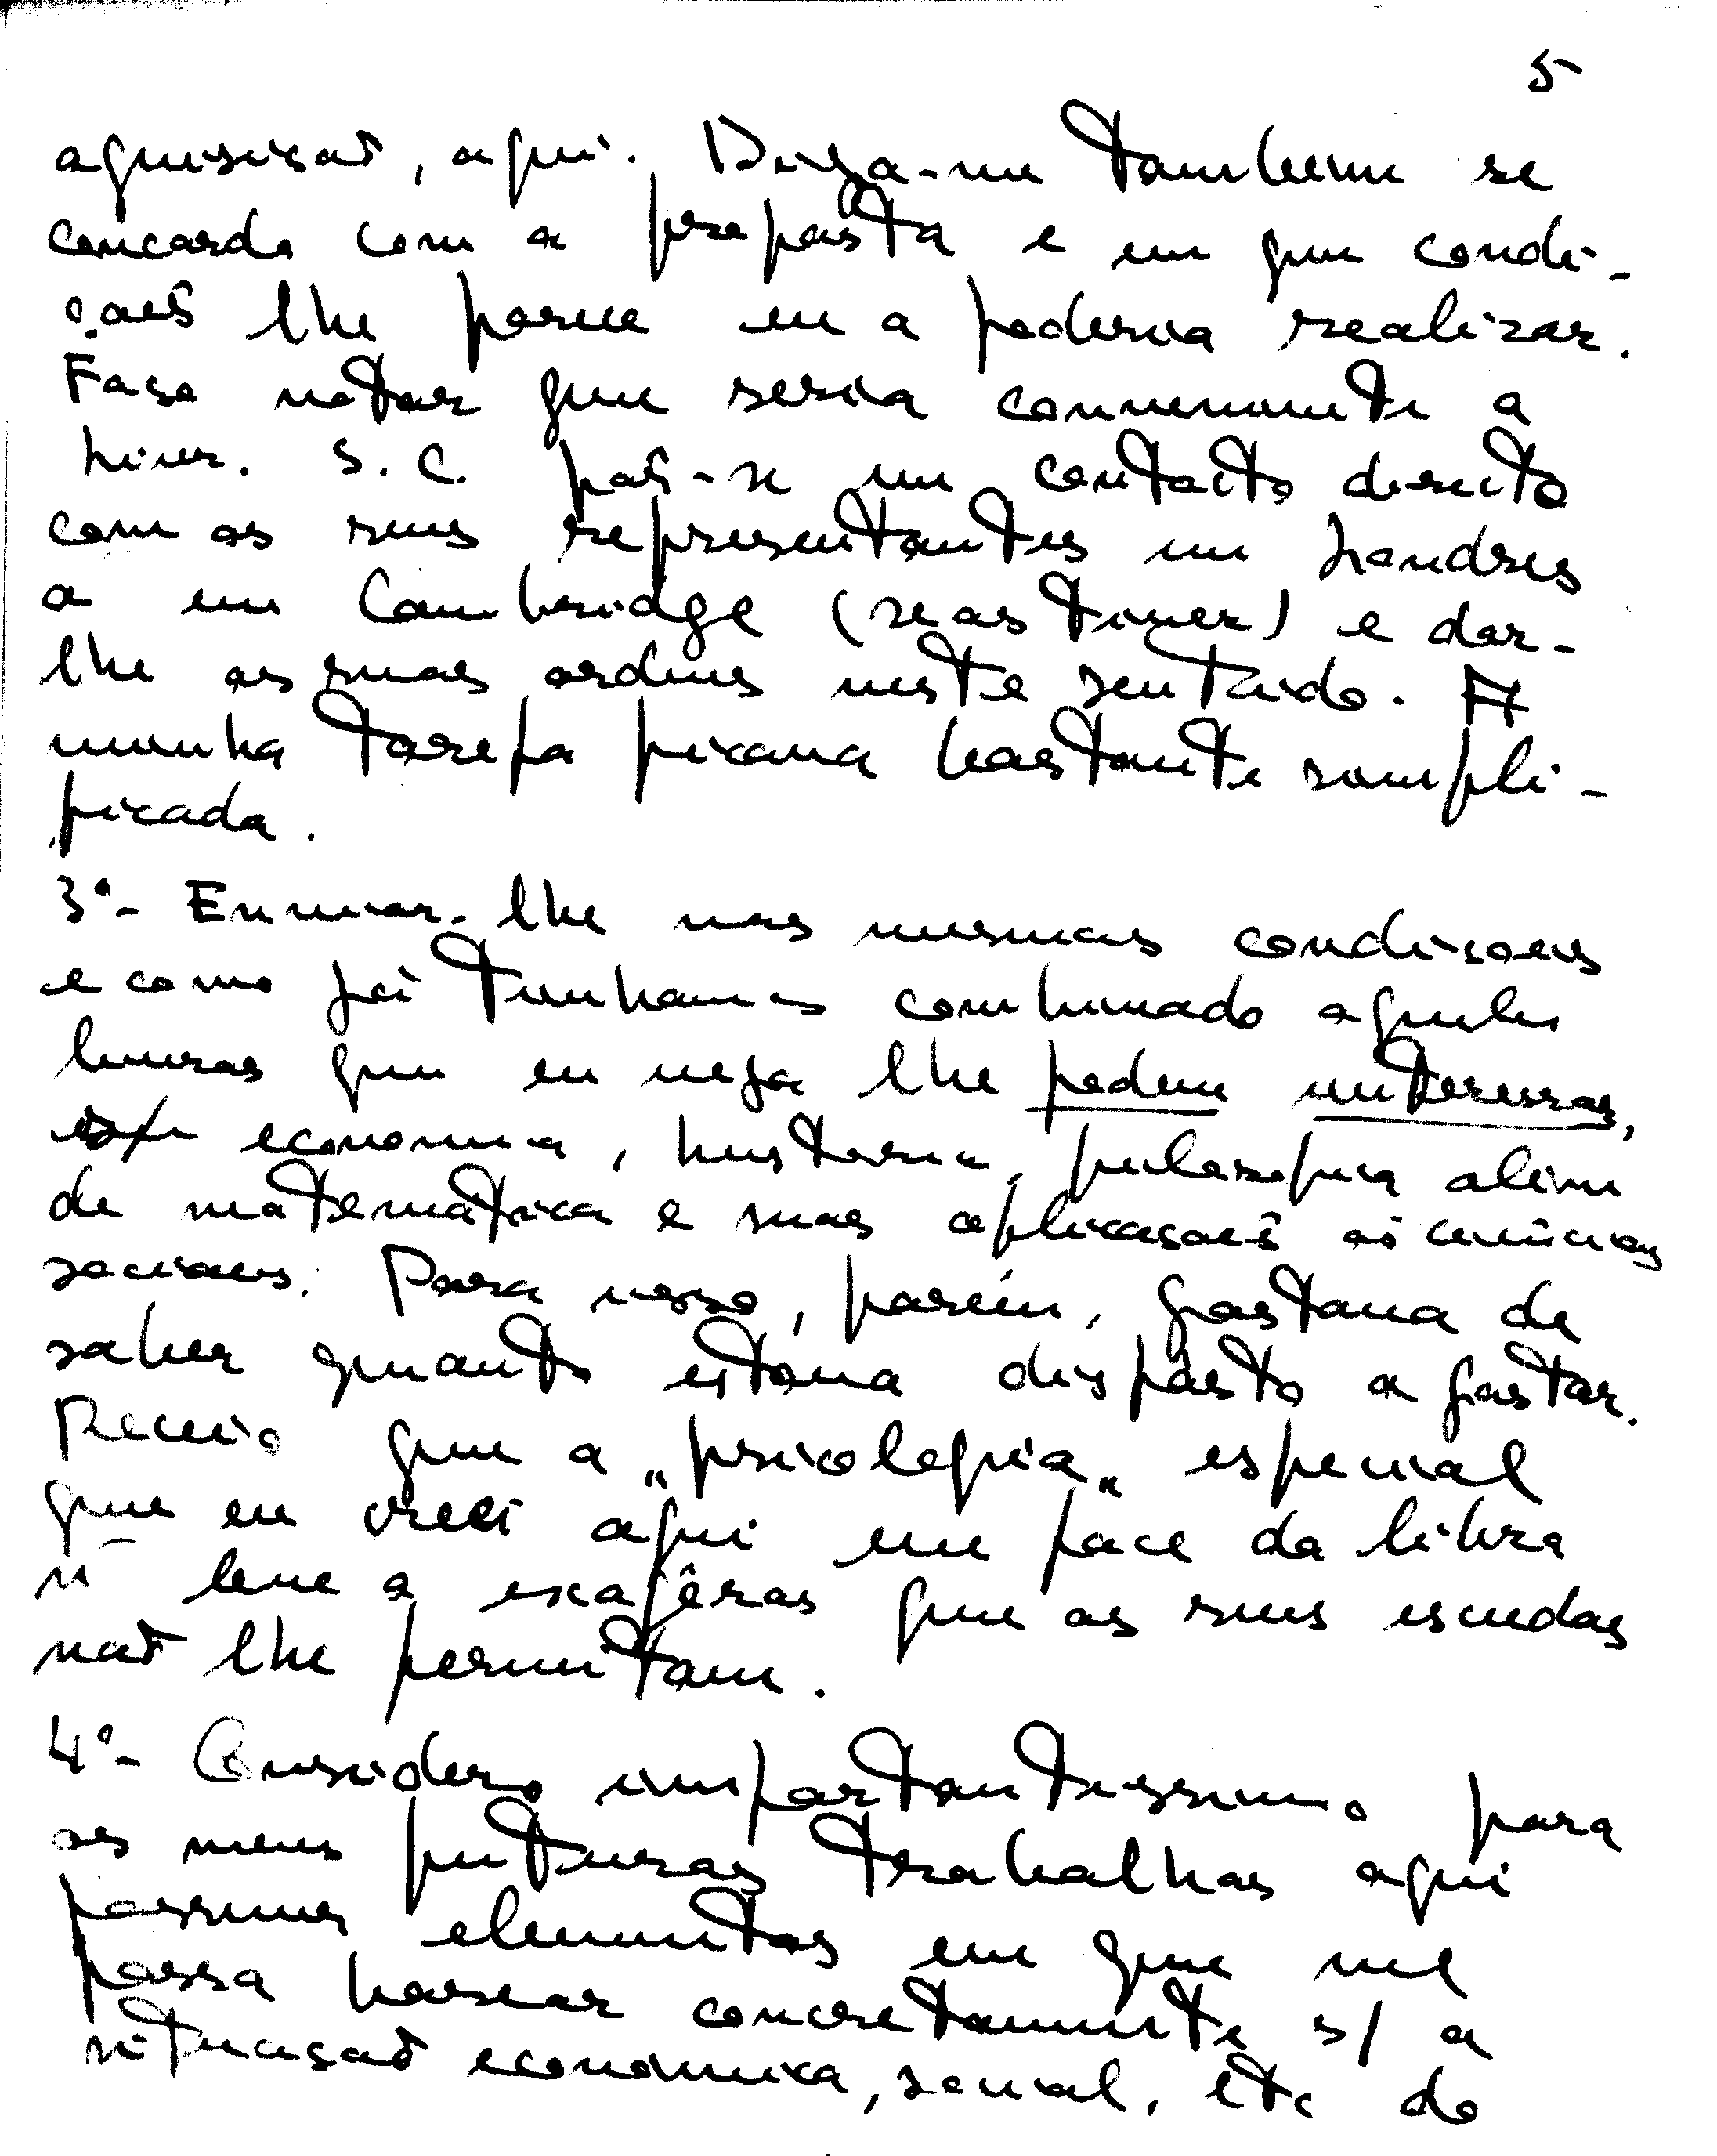 5
aquisição, aqui. Diga-me tambem se
concorda com a proposta e em que condi-
ções lhe parece eu a poderia realizar.
Faço notar que seria conveniente a
Livr. S. C. pôr-se em contacto directo
com os seus representantes em Londres
o em Cambridge (se as tiver) e dar-
lhe as suas ordens neste sentido. A
minha tarefa ficava bastante simpli-
ficada.
3º - Enviar-lhe nas mesmas condições
e como já tinhamos combinado aqueles
livros que eu veja lhe podem interessar,
economia, historia, filosofia alem
de matemática e suas aplicações ás ciências
sociais. Para isso, porém, gostava de
saber quanto estava disposto a gastar.
Receio que a „psicologia" especial
que eu criei aqui em face da libra
ñ leve a exagêros que os seus escudos
não lhe permitam.
4º - Considero importantissimo para
os meus futuros trabalhos aqui
possuir elementos em que me
possa basear concretamente s/ a
situação economica, social, etc do